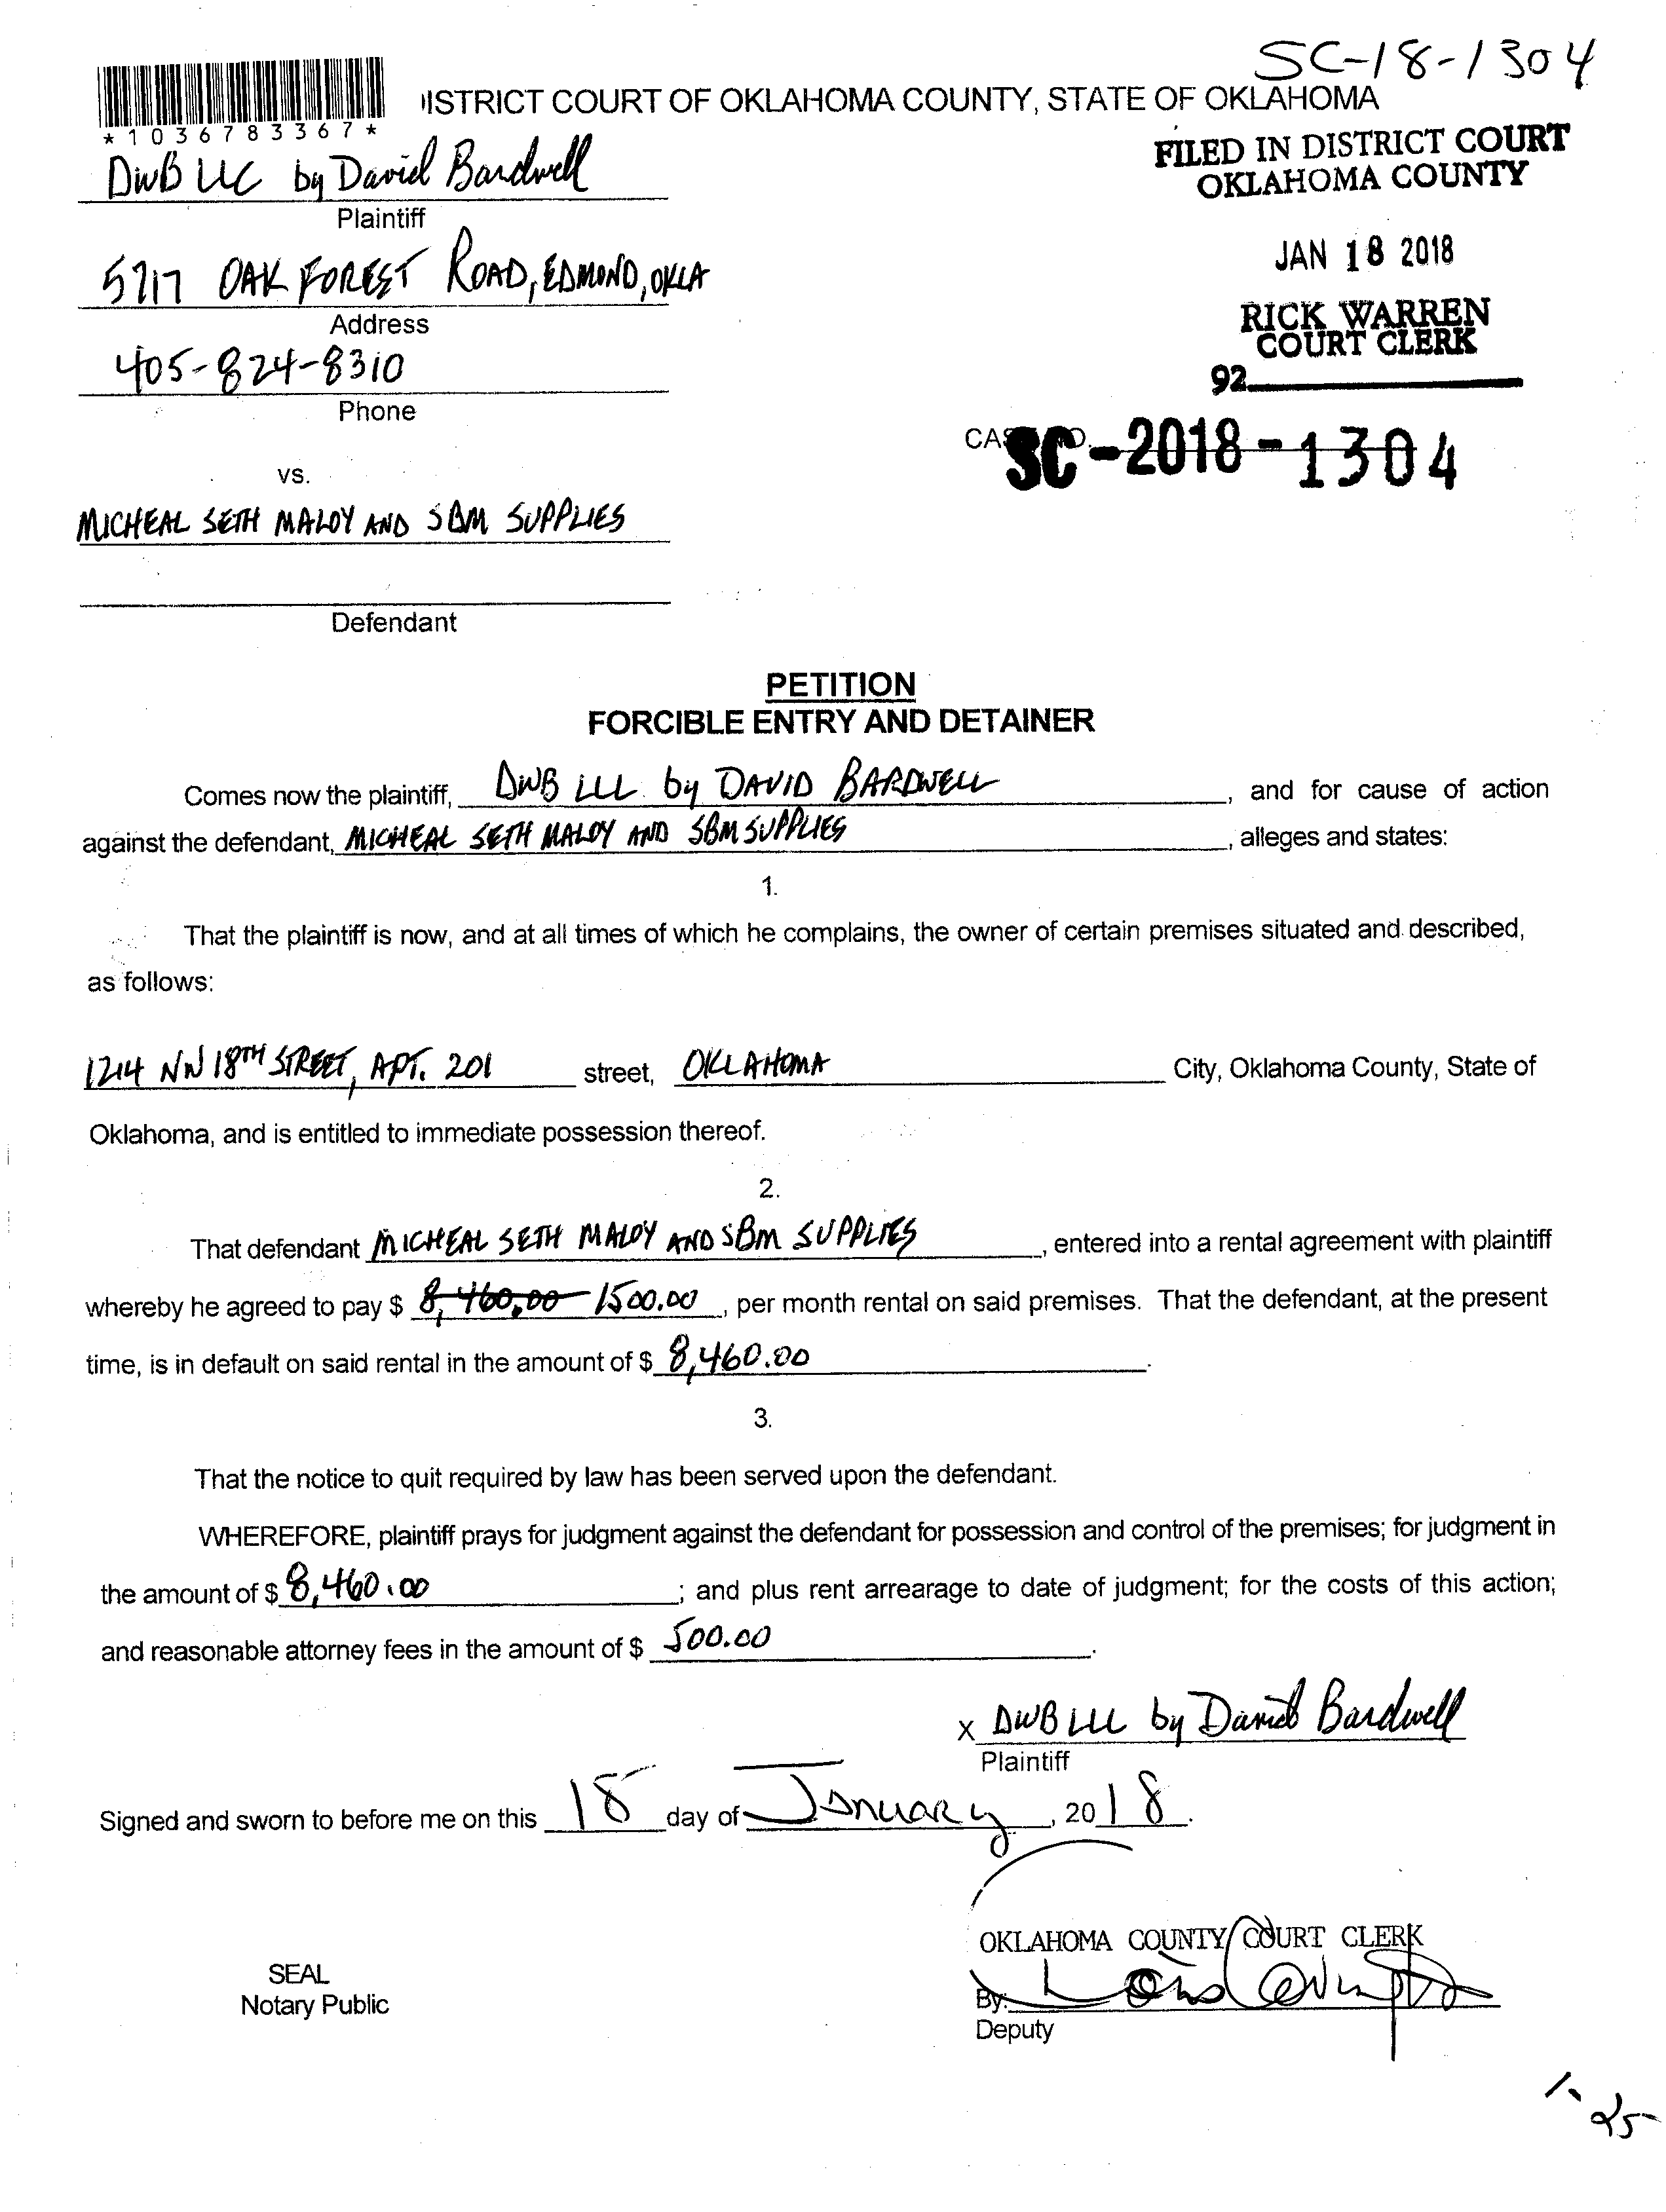 SC-18-1304
ISTRICT COURT OF OKLAHOMA COUNTY, STATE OF OKLAHOMA
*1036783367*
FILED IN DISTRICT COURT
OKLAHOMA COUNTY
DWB LLC by David Bardwell
Plaintiff
JAN 18 2018
5717 OAK FOREST ROAD, EDMOND, OKLA
Address
RICK WARREN
COURT CLERK
405-824-8310
92
Phone
SC-2018-1304
vs.
MICHEAL SETH MALOY AND SBM SUPPLIES
Defendant
PETITION
FORCIBLE ENTRY AND DETAINER
Comes now the plaintiff, DWB LLC by DAVID BARDWELL, and for cause of action
against the defendant, MICHEAL SETH MALOY AND SBM SUPPLIES, alleges and states:
1.
That the plaintiff is now, and at all times of which he complains, the owner of certain premises situated and described,
as follows:
1214 NW 18TH STREET, APT. 201 street, OKLAHOMA City, Oklahoma County, State of
Oklahoma, and is entitled to immediate possession thereof.
2.
That defendant MICHEAL SETH MALOY AND SBM SUPPLIES, entered into a rental agreement with plaintiff
whereby he agreed to pay $ 8,460.00 1500.00, per month rental on said premises. That the defendant, at the present
time, is in default on said rental in the amount of $ 8,460.00.
3.
That the notice to quit required by law has been served upon the defendant.
WHEREFORE, plaintiff prays for judgment against the defendant for possession and control of the premises; for judgment in
the amount of $ 8,460.00; and plus rent arrearage to date of judgment; for the costs of this action;
and reasonable attorney fees in the amount of $ 500.00.
X DWB LLC by David Bardwell
Plaintiff
Signed and sworn to before me on this 18 day of January, 2018.
OKLAHOMA COUNTY COURT CLERK
SEAL
Notary Public
By:
Deputy
1-25